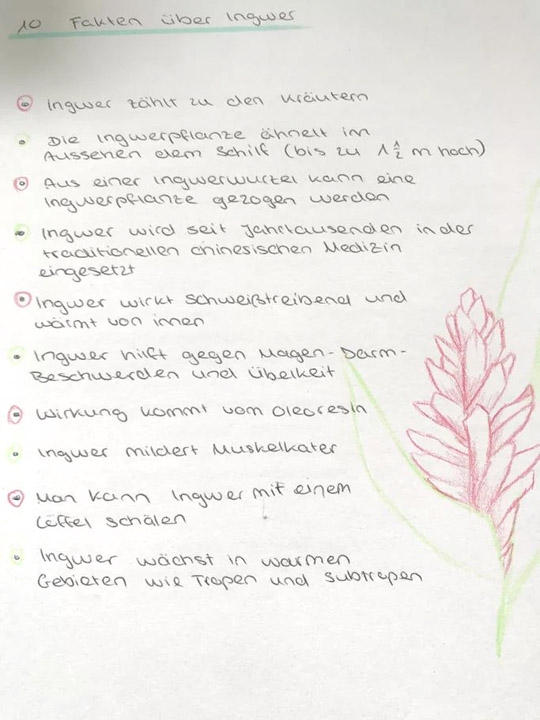 10 Fakten über Ingwer
Ingwer zählt zu den Kräutern
Die Ingwerpflanze ähnelt im
Aussehen dem Schilf (bis zu 1 1/2 m hoch)
Aus einer Ingwerwurzel kann eine
Ingwerpflanze gezogen werden
Ingwer wird seit Jahrtausenden in der
traditionellen chinesischen Medizin
eingesetzt
Ingwer wirkt Schweißtreibend und
wärmt von innen
Ingwer hilft gegen Magen-Darm-
Beschwerden und Übelkeit
Wirkung kommt vom Oleoresin
Ingwer mildert Muskelkater
Man kann Ingwer mit einem
Löffel schälen
Ingwer wächst in warmen
Gebieten wie Tropen und Subtropen